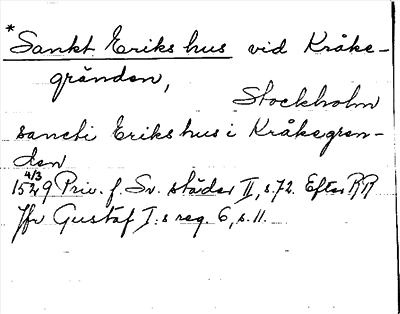 *Sankt Eriks hus vid Kråke-
gränden,
Stockholm
sancti Eriks hus i Kråkegren-
den
4/3
1529 Priv. f. Sv. städer II, s. 72. Efter RR
Jfr Gustaf I:s reg. 6, s. 11.